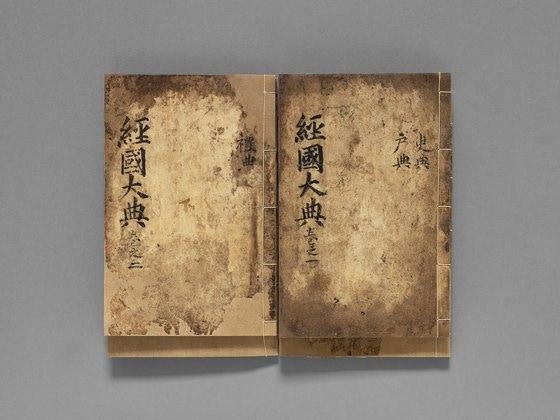 吏典
户典
經國大典 卷之一
禮典
經國大典 卷之二